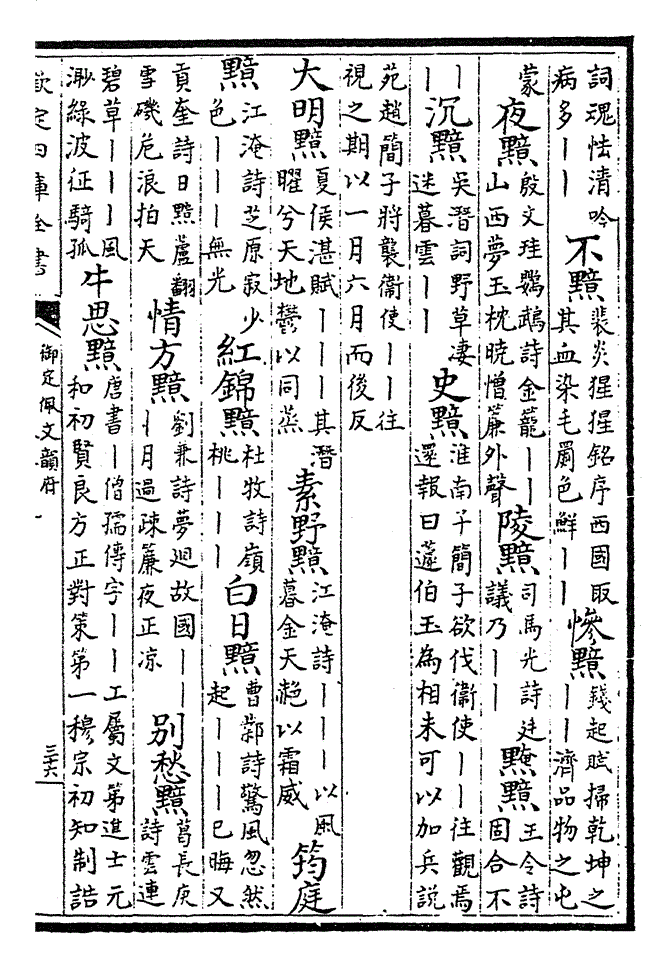 詞瑰怯清吟病多｜｜ 不黯 裴炎猩猩銘序西國取其血染毛罽色鮮｜｜ 慘黯 錢起賦掃乾坤之｜｜濟品物之屯
蒙 夜黯 殷文珪鸚鵡詩金籠｜｜山西夢玉枕曉憎簾外聲 陵黯 司馬光詩廷議乃｜｜ 黤黯 王令詩固合不
｜｜ 沉黯 吳潛詞野草凄迷暮雲｜｜ 史黯 淮南子簡子欲伐衞使｜｜往觀焉還報曰蘧伯玉為相未可以加兵說
苑趙簡子將襲衞使｜｜往視之期以一月六月而後反
大明黯 夏侯湛賦｜｜｜其潛曜兮天地鬱以同蒸 素野黯 江淹詩｜｜｜以風暮金天赩以霜威 筠庭
黯 江淹詩芝原寂少色｜｜｜無光 紅錦黯 杜牧詩嶺桃｜｜｜ 白日黯 曹鄴詩驚風忽然起｜｜｜已晦又
貢奎詩日黯蘆翻雪磯危浪拍天 情方黯 劉兼詩夢迴故國｜｜｜月過疎簾夜正凉 別愁黯 葛長庚詩雲連
碧草｜｜｜風渺綠波征騎孤 牛思黯 唐書｜僧孺傳字｜｜工屬文第進士元和初賢良方正對策第一穆宗初知制誥
欽定四庫全書 御定佩文韻府 三十六